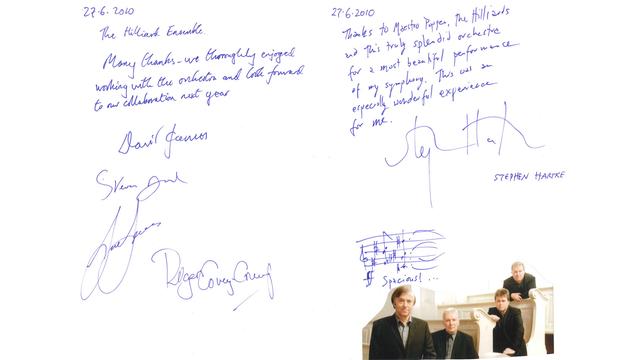 27.6.2010
The Hilliard Ensemble
Many thanks - we thoroughly enjoyed
working with the orchestra and look forward
to our collaboration next year
David James
Steven
Rogers Covey-Crump
27.6.2010
Thanks to Maestro Popper, the Hilliards
and this truly splendid orchestre
for a most beautiful performance
of my symphony. This was an
especially wonderful experience
for me.
Step Hart
STEPHEN HARTKE
Spacious! ...